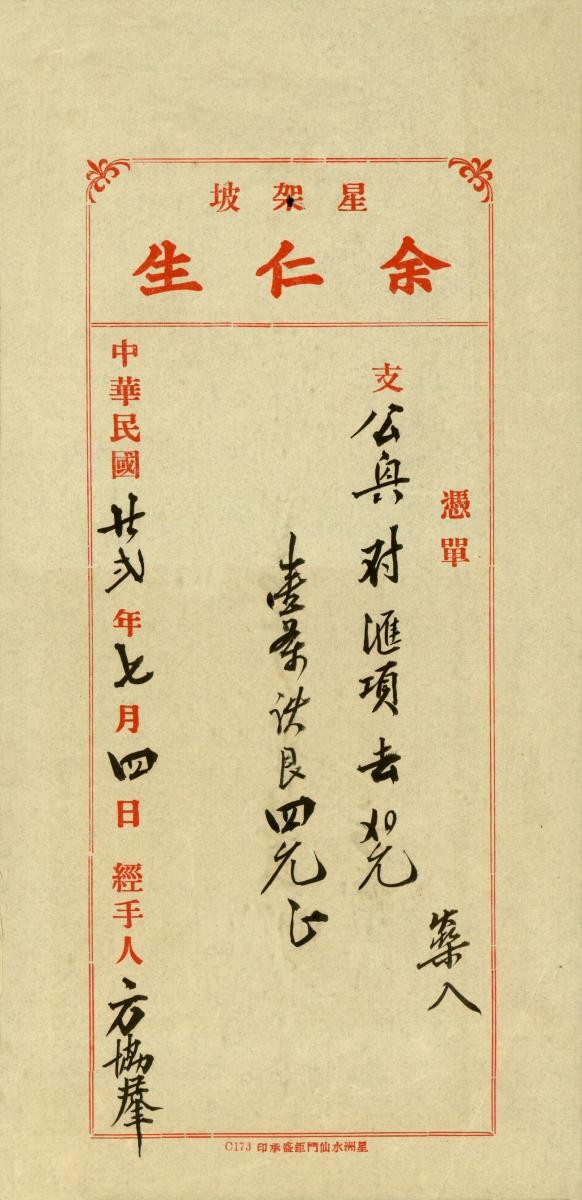 星架坡
余仁生
憑單
支公與對滙項去〤0元
壹単 四元正
中華民國廿弍年七月四日 經手人方協羣
入
星洲水仙門鉅盛承印 C173